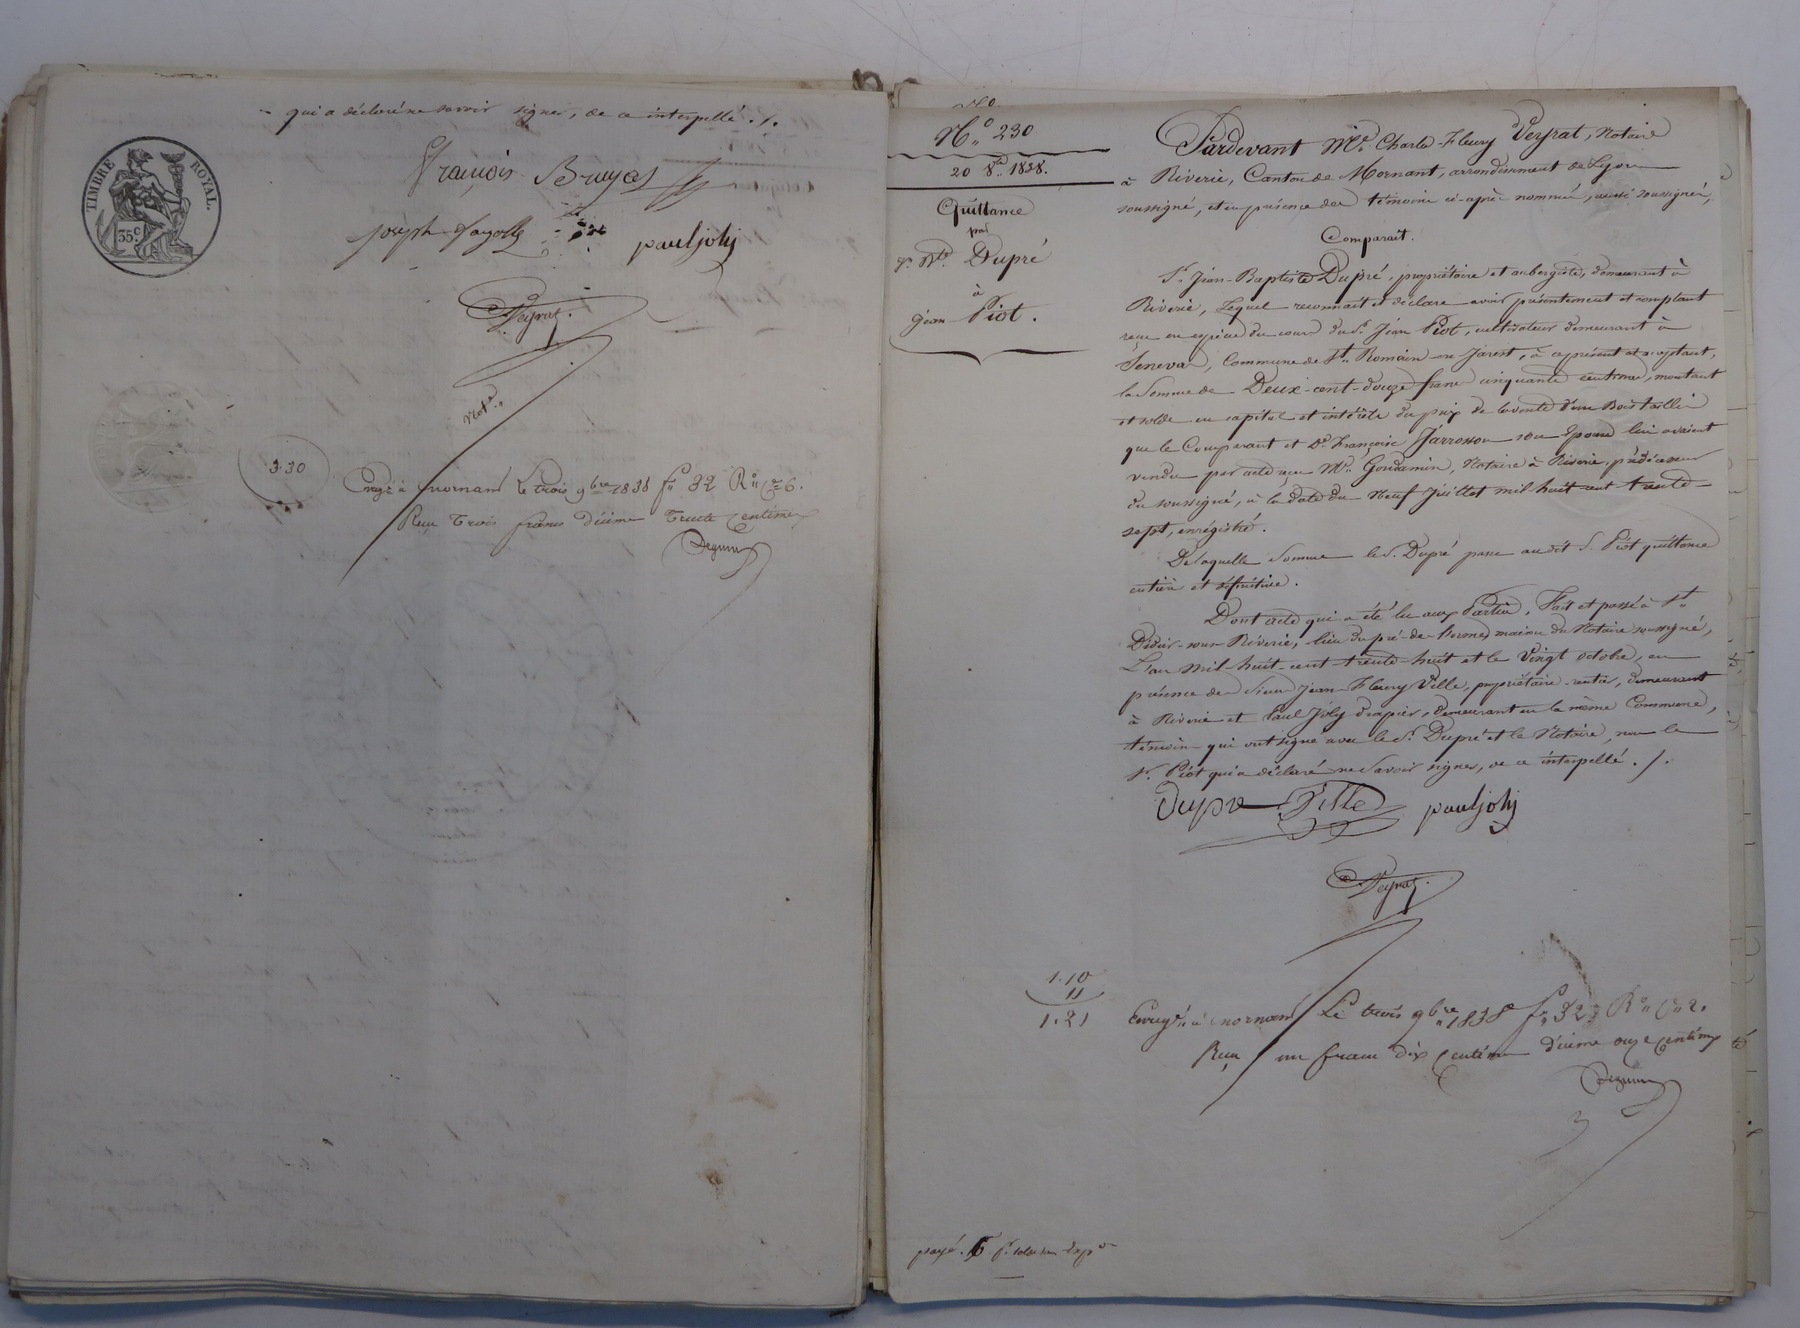 qui a déclaré ne savoir signer, de ce interpellé ./.
TIMBRE ROYAL.
35c
François Bruyas
Joseph Fayolle pauljoly
Veyrat.
Not.re
3.30
Enrgé à Mornant le trois 9bre 1838 f° 32 R° Ce 6.
Reçu trois francs décime trente centimes
N.° 230
20 8.bre 1838.
Quittance
par
Sr. Bte. Dupré
à
Jean Piot.
Pardevant Me. Charles-Fleury Veyrat, Notaire
à Riverie, Canton de Mornant, arrondissement de Lyon
soussigné, et en présence des témoins ci-après nommés, aussi soussignés,
Comparait.
Sr. Jean-Baptiste Dupré, propriétaire et aubergiste, demeurant à
Riverie, Lequel reconnait et déclare avoir présentement et comptant
reçu en espèces du cours du Sr. Jean Piot, cultivateur demeurant à
Seneva, Commune de St. Romain en Jarest, à ce présent et acceptant,
la Somme de Deux-cent-douze francs cinquante centimes, montant
et solde en capital et intérêts du prix de la vente d'un Bois taillis
que le Comparant et De. Françoise Jarrosson son Epouse lui avaient
vendu par acte reçu Me. Goudamin, Notaire à Riverie, prédécesseur
du soussigné, à la date du Neuf Juillet mil huit cent trente-
sept, enrégistré.
De laquelle Somme le S. Dupré passe audit S. Piot quittance
entière et définitive.
Dont acte qui a été lu aux Parties. Fait et passé à St.
Didier-sous-Riverie, lieu du pré-de-hormes, maison du Notaire soussigné,
L'an Mil-huit-cent-trente-huit et le Vingt octobre, en
présence des Sieurs Jean-Fleury Ville, propriétaire-rentier, demeurant
à Riverie et Paul Joly drapier, demeurant en la même Commune,
témoins qui ont signé avec le Sr. Dupré et le Notaire, non le
Sr. Piot qui a déclaré ne savoir signer, de ce interpellé ./.
Dupré Ville pauljoly
Veyrat.
1.10
11
1.21
Enregé. à Mornant Le trois 9bre 1838 f° 32 R° Ce 2.
Reçu un franc dix centimes décime onze centimes
payé. 6 f.